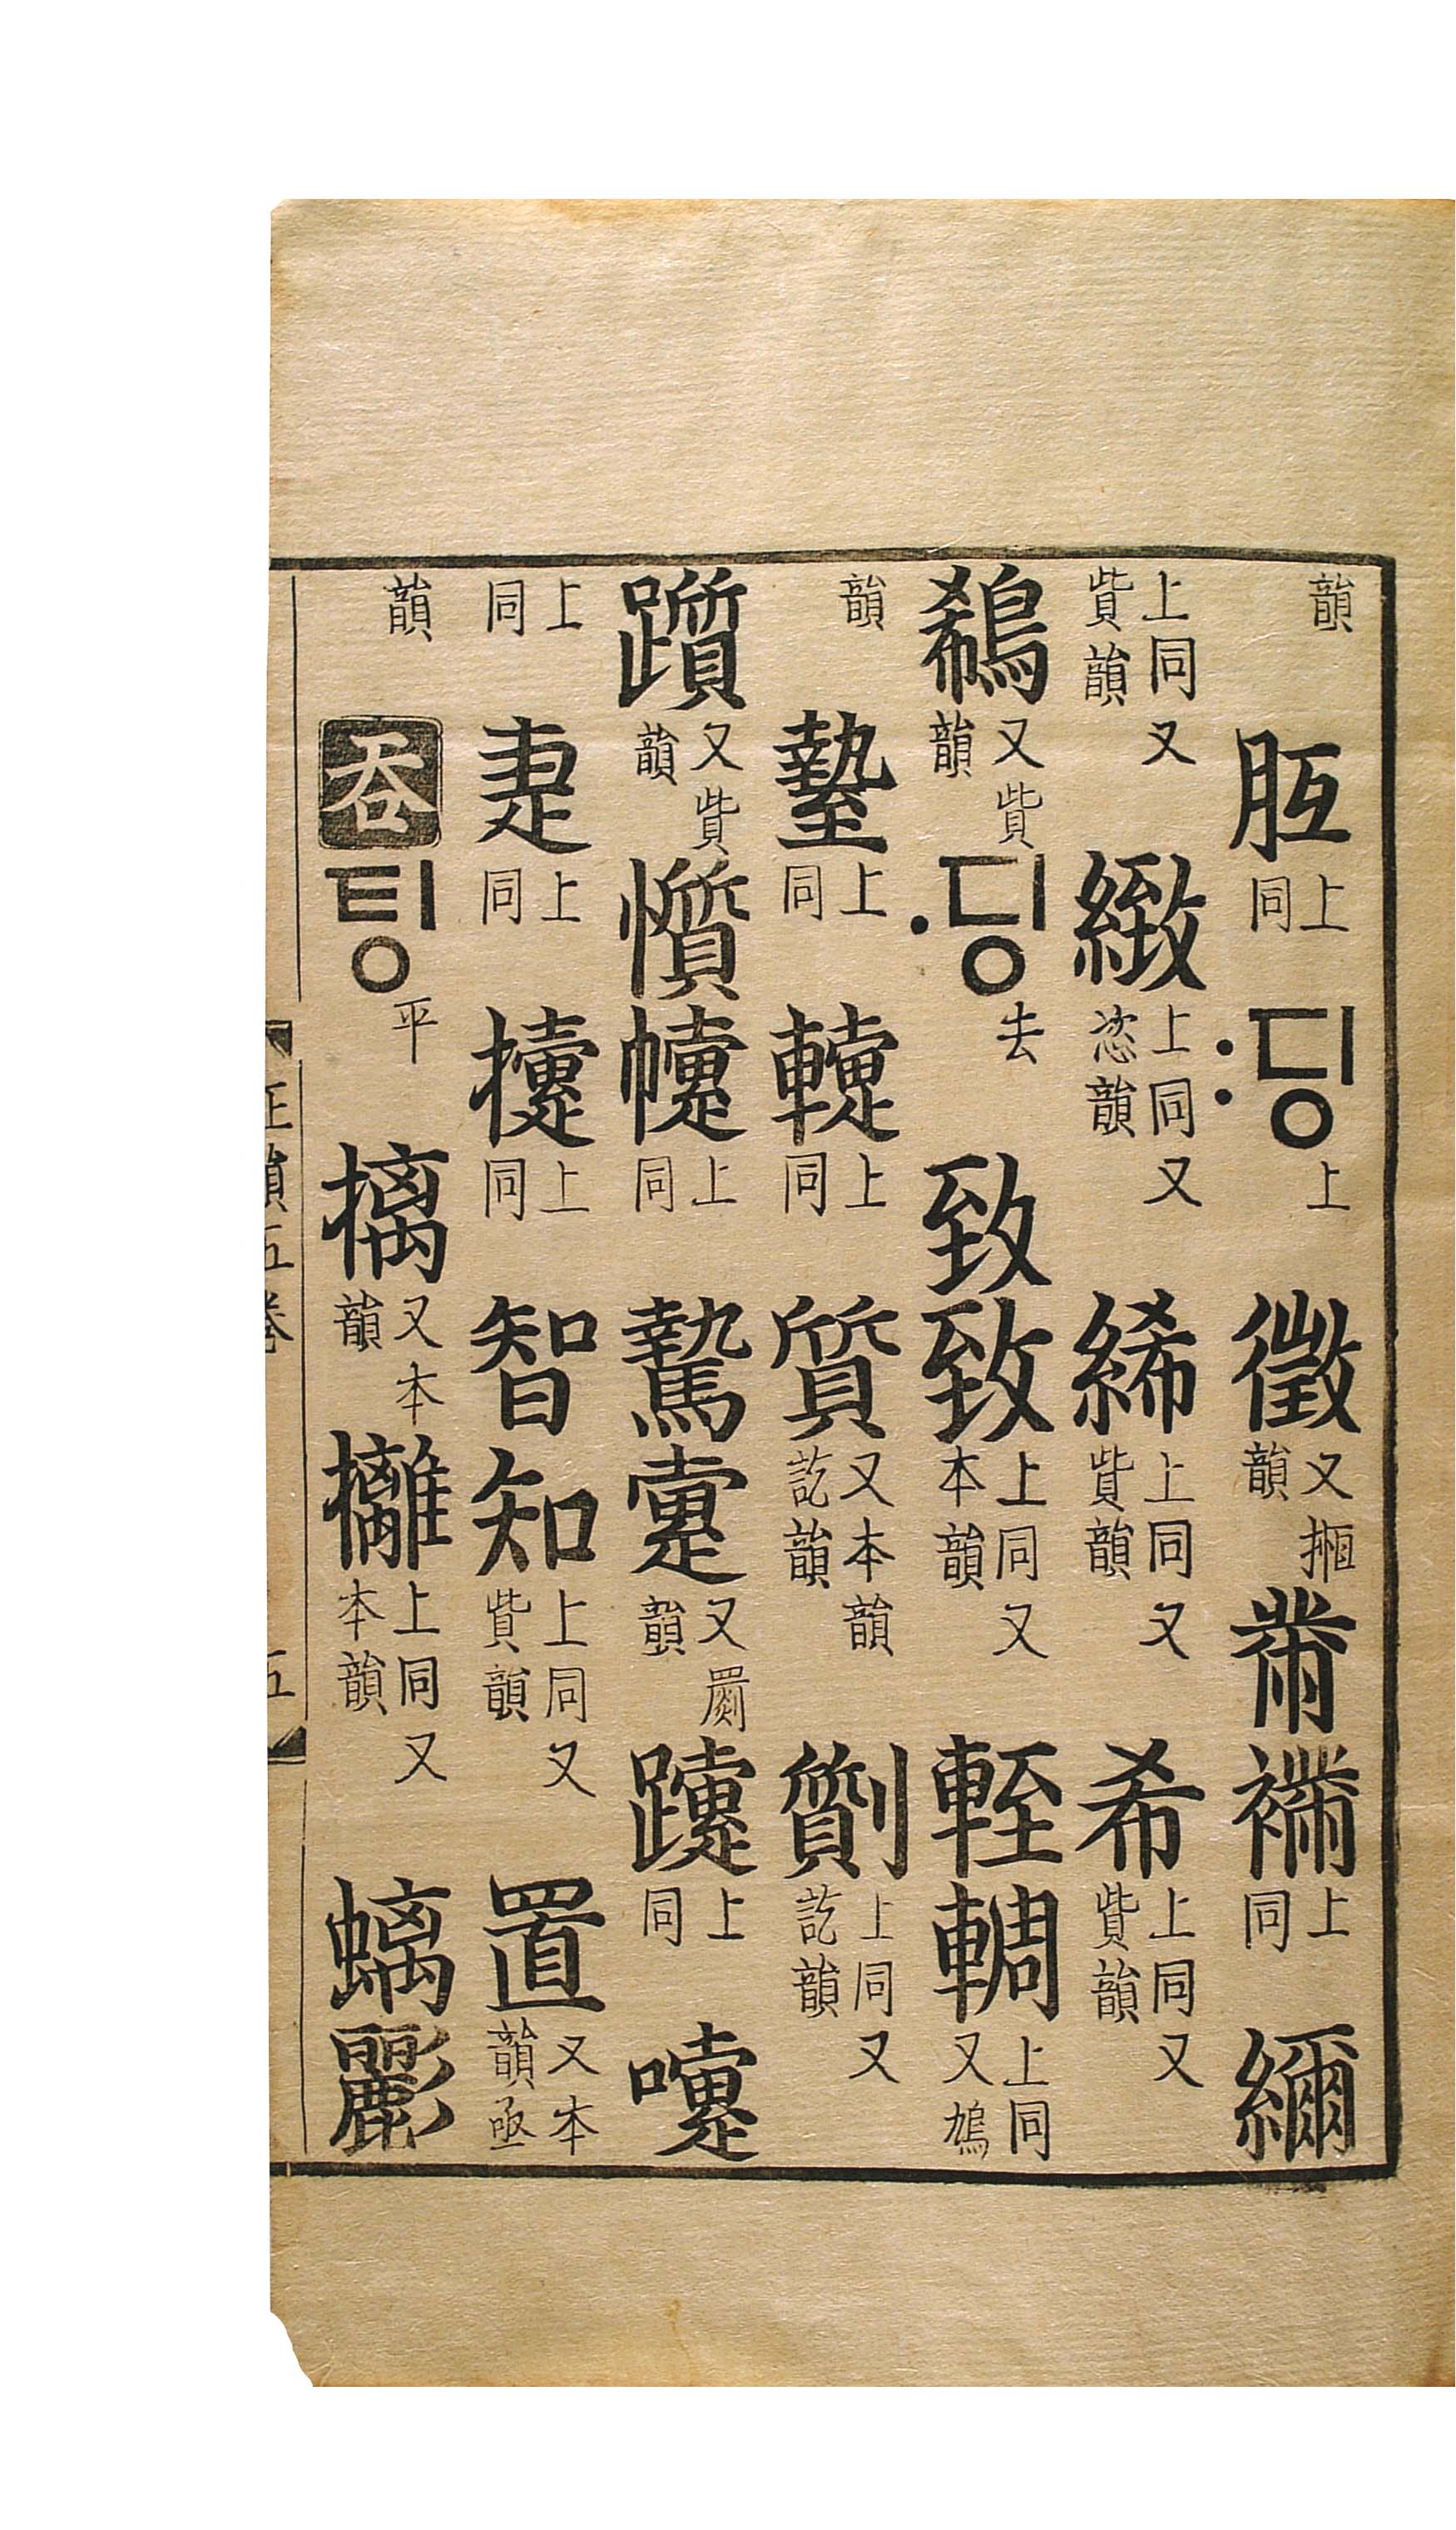 韻 上同 :딩 上 徵 又揯韻 黹 上同
上同又貲韻 緻 上同又恣韻 絺 上同又貲韻 希 上同又貲韻
鵗 又貲韻 ·딩 去 致 致 上同又本韻 輊 輖 上同又鳩
韻 上同 上同 質 又本韻訖韻 劕 上同又訖韻
躓 又貲韻 懫 上同 騺 疐 又罽韻 上同 嚏
上同 疌 上同 上同 智 知 上同又貲韻 置 又本韻亟
韻 呑 팅 平 摛 又本韻 攡 上同又本韻 螭 彲
正韻五卷 五